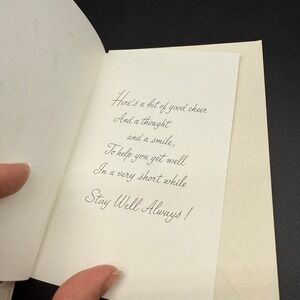 Here's a bit of good cheer
And a thought
and a smile,
To help you get well
In a very short while
Stay Well Always!